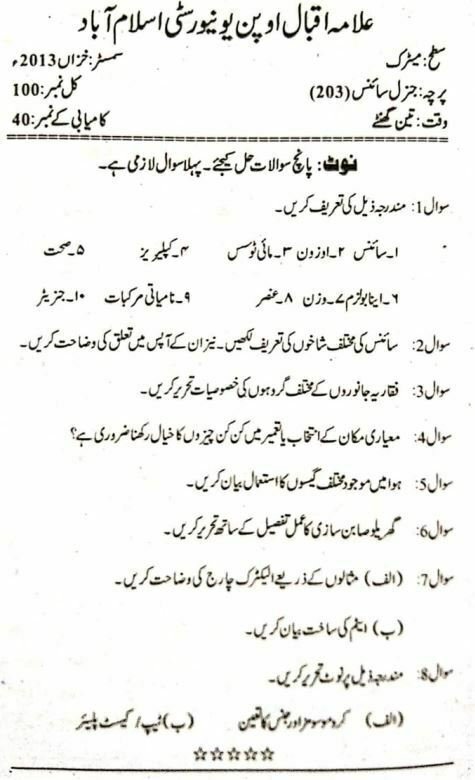 علامہ اقبال اوپن یونیورسٹی اسلام آباد
سطح: میٹرک سمسٹر: خزاں 2013ء
پرچہ: جنرل سائنس (203) کل نمبر: 100
وقت: تین گھنٹے کامیابی کے نمبر: 40
نوٹ: پانچ سوالات حل کیجئے۔ پہلا سوال لازمی ہے۔
سوال 1: مندرجہ ذیل کی تعریف کریں۔
۱۔ سائنس ۲۔ اوزون ۳۔ مائی ٹوسس ۴۔ کپلیریز ۵۔ صحت
۶۔ اینابولزم ۷۔ وزن ۸۔ عنصر ۹۔ نامیاتی مرکبات ۱۰۔ جنریٹر
سوال 2: سائنس کی مختلف شاخوں کی تعریف لکھیں۔ نیز ان کے آپس میں تعلق کی وضاحت کریں۔
سوال 3: فقاریہ جانوروں کے مختلف گروہوں کی خصوصیات تحریر کریں۔
سوال 4: معیاری مکان کے انتخاب یا تعمیر میں کن کن چیزوں کا خیال رکھنا ضروری ہے؟
سوال 5: ہوا میں موجود مختلف گیسوں کا استعمال بیان کریں۔
سوال 6: گھریلو صابن سازی کا عمل تفصیل کے ساتھ تحریر کریں۔
سوال 7: (الف) مثالوں کے ذریعے الیکٹرک چارج کی وضاحت کریں۔
(ب) ایٹم کی ساخت بیان کریں۔
سوال 8: مندرجہ ذیل پر نوٹ تحریر کریں۔
(الف) کروموسومز اور جنس کا تعین (ب) ٹیپ / کیسٹ پلیئر